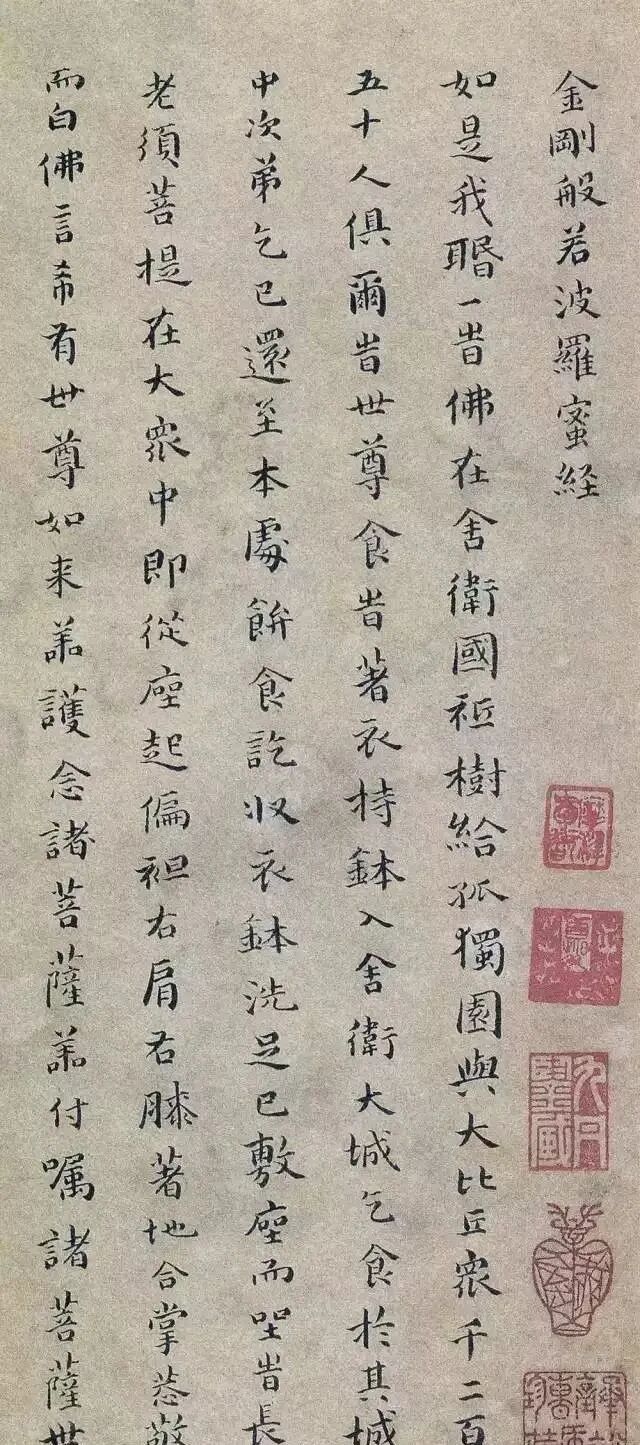 金剛般若波羅蜜経
如是我䎽一旹佛在舍衛國祇樹給孤獨園與大比丘衆千二百
五十人俱爾旹世尊食旹著衣持鉢入舍衛大城乞食於其城
中次弟乞已還至本處飰食訖収衣鉢洗足已敷座而坐旹長
老須菩提在大衆中即從座起偏袒右肩右膝著地合掌恭敬
而白佛言希有世尊如来善護念諸菩薩善付嘱諸菩薩世